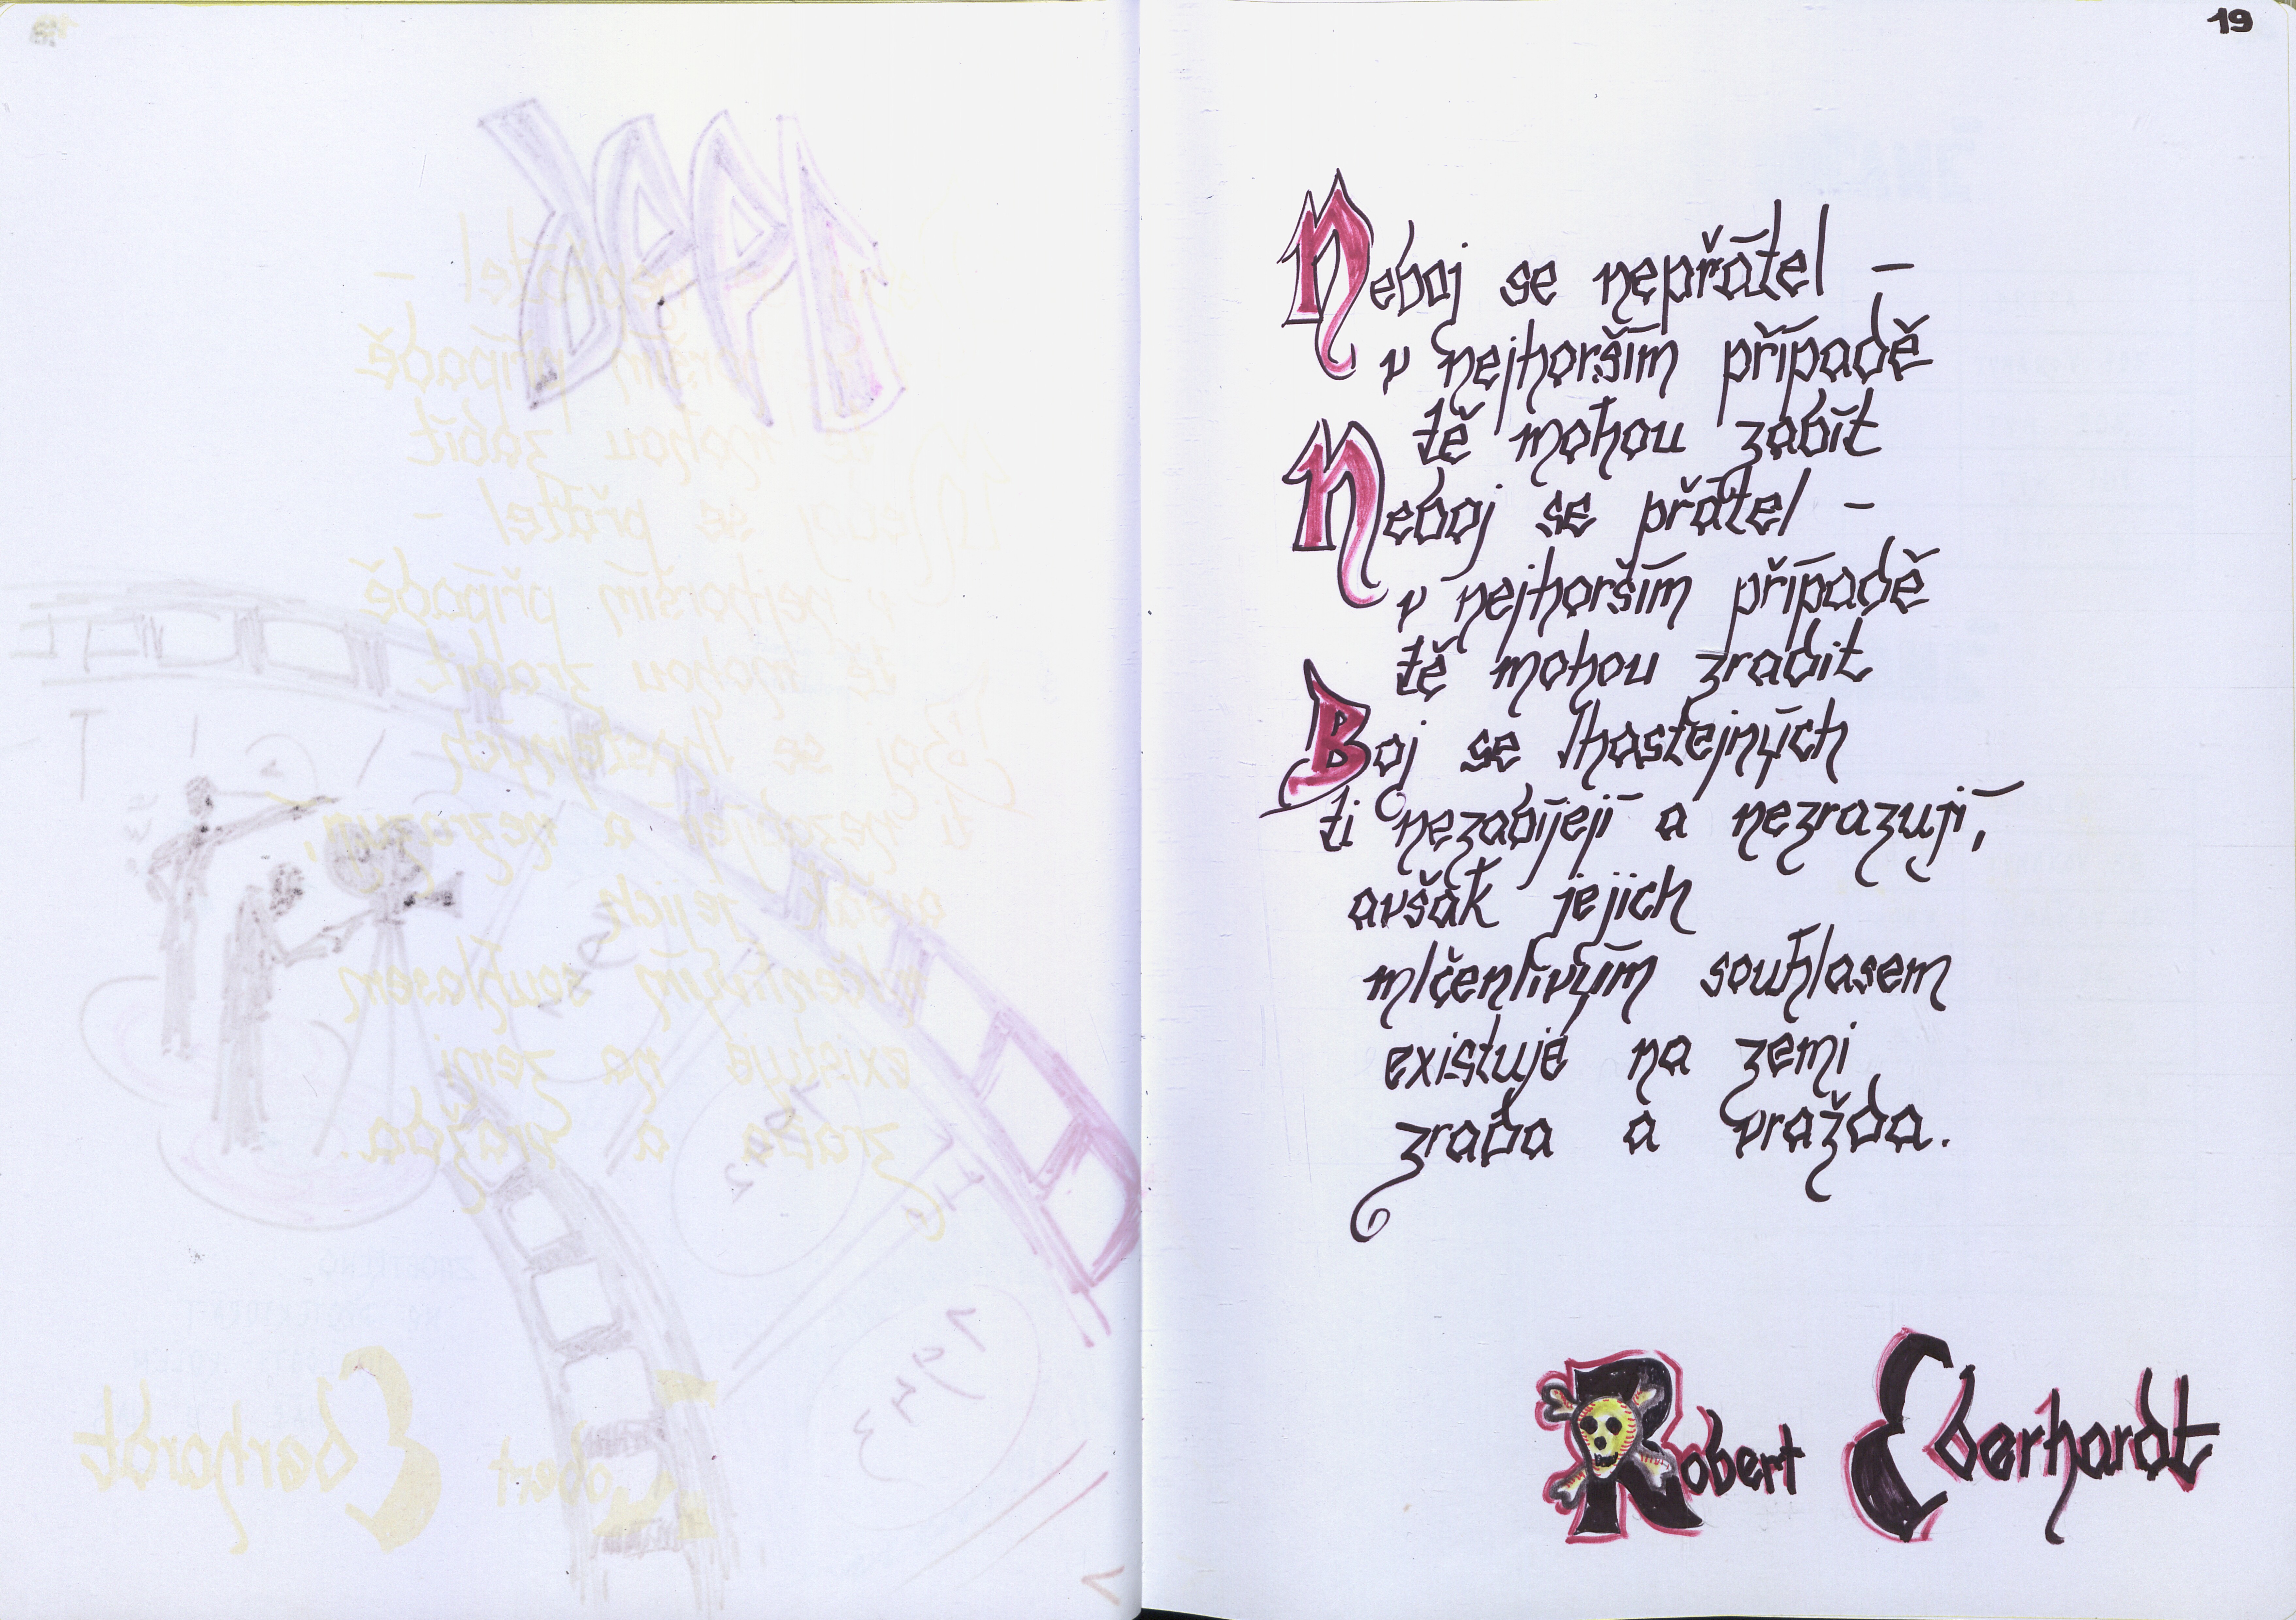 19
Neboj se nepřátel –
v nejhorším případě
tě mohou zabít
Neboj se přátel –
v nejhorším případě
tě mohou zradit
Boj se lhostejných
ti nezabíjejí a nezrazují,
avšak jejich
mlčenlivým souhlasem
existuje na zemi
zrada a vražda.
Robert Eberhardt